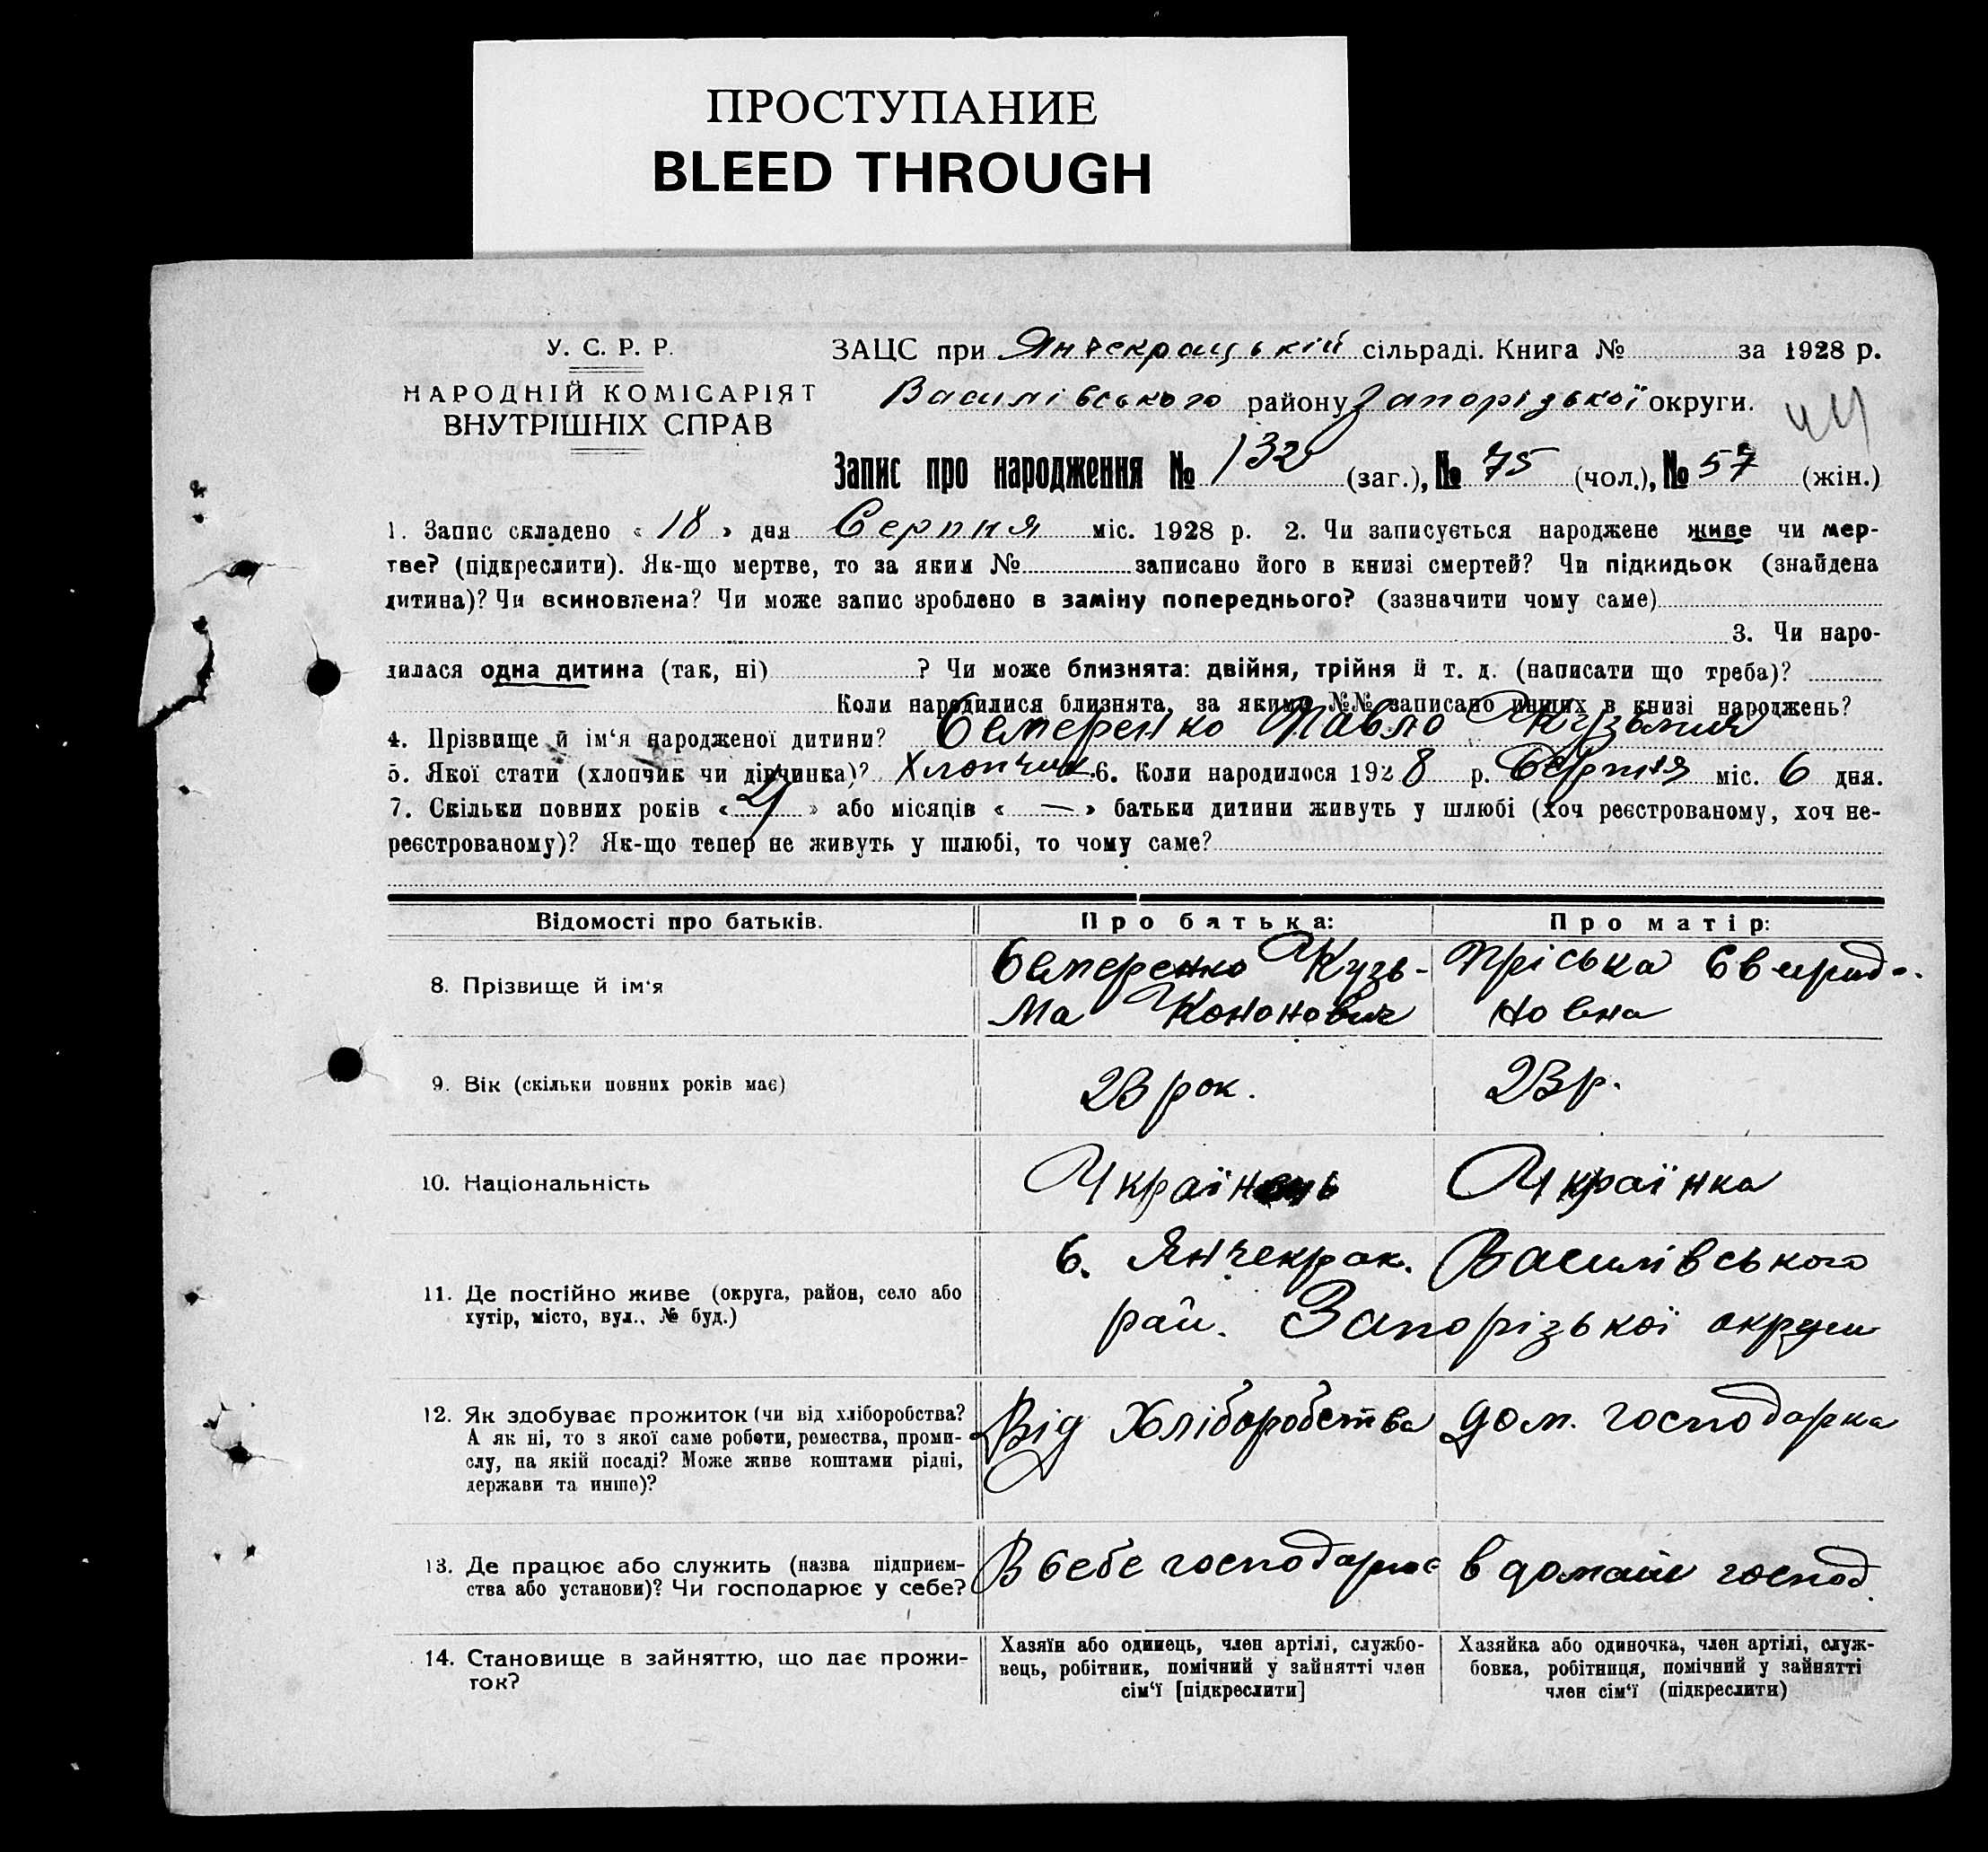 ПРОСТУПАНИЕ
BLEED THROUGH
У. С. Р. Р.
НАРОДНІЙ КОМІСАРІЯТ
ВНУТРІШНІХ СПРАВ
ЗАЦС при Янчекрацькій сільраді. Книга № за 1928 р.
Василівського району Запорізької округи.
44
Запис про народження № 132 (заг.), № 75 (чол.), № 57 (жін.)
1. Запис складено « 18 » дня Серпня міс. 1928 р. 2. Чи записується народжене живе чи мер-
тве? (підкреслити). Як-що мертве, то за яким № записано його в книзі смертей? Чи підкидьок (знайдена
дитина)? Чи всиновлена? Чи може запис зроблено в заміну попереднього? (зазначити чому саме)
3. Чи наро-
дилася одна дитина (так, ні) ? Чи може близнята: двійня, трійня й т. д. (написати що треба)?
Коли народилися близнята, за якими №№ записано инших в книзі народжень?
4. Прізвище й ім‘я народженої дитини? Семеренко Павло Кузьмич
5. Якої стати (хлопчик чи дівчинка)? Хлопчик 6. Коли народилося 1928 р. Серпня міс. 6 дня.
7. Скільки повних років « 4 » або місяців « — » батьки дитини живуть у шлюбі (хоч реєстрованому, хоч не-
реєстрованому)? Як-що тепер не живуть у шлюбі, то чому саме?
Відомості про батьків. Про батька: Про матір:
8. Прізвище й ім‘я
Семеренко Кузь-
ма Кононович
Пріська Свирид-
новна
9. Вік (скільки повних років має) 23 рок. 23 р.
10. Національність Українець Українка
11. Де постійно живе (округа, район, село або
хутір, місто, вул., № буд.)
с. Янчекрак. Василівського
рай. Запорізької округи
12. Як здобуває прожиток (чи від хліборобства?
А як ні, то з якої саме роботи, ремества, проми-
слу, на якій посаді? Може живе коштами рідні,
держави та инше)?
Від Хліборобства
дом. господарка
13. Де працює або служить (назва підприєм-
ства або установи)? Чи господарює у себе?
В себе господарює
в домаш господ.
14. Становище в зайняттю, що дає прожи-
ток?
Хазяїн або одинець, член артілі, службо-
вець, робітник, помічний у зайнятті член
сім‘ї [підкреслити]
Хазяйка або одиночка, член артілі, служ-
бовка, робітниця, помічний у зайнятті
член сім‘ї (підкреслити)